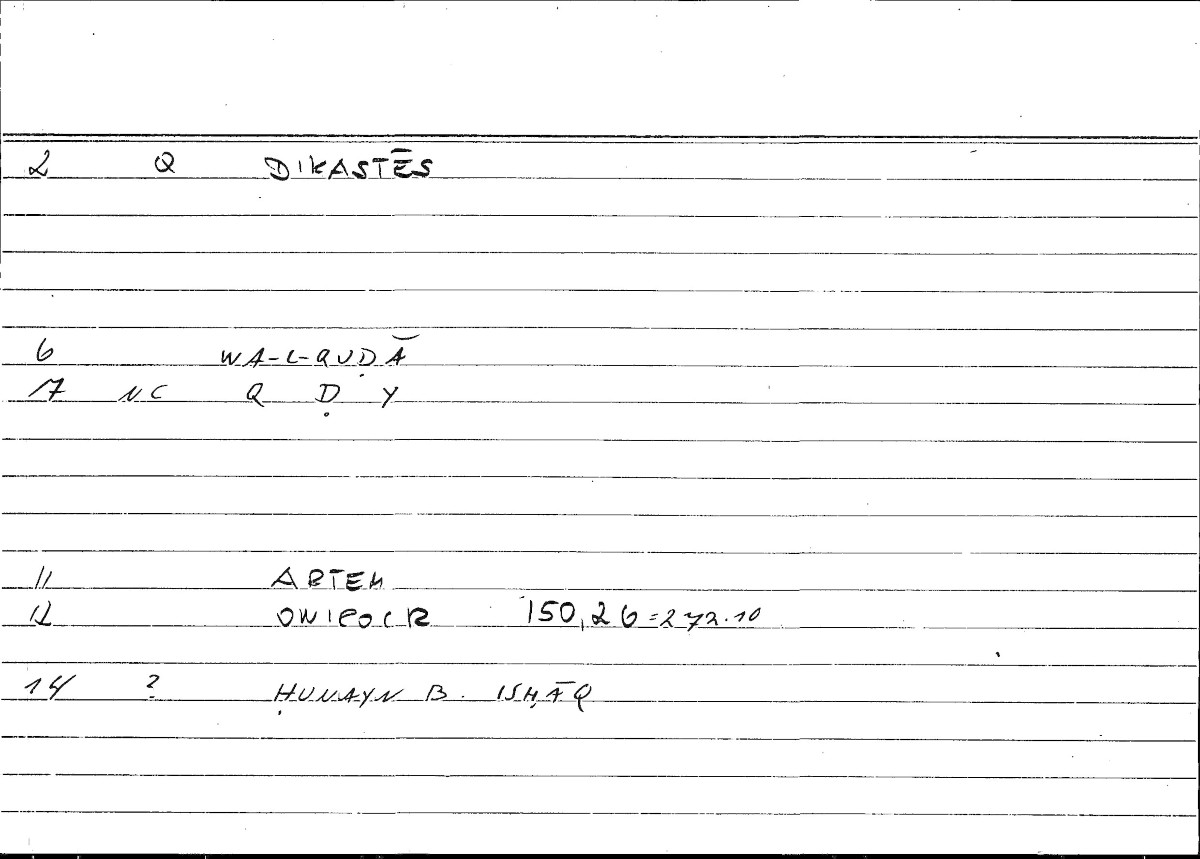 2 Q DIKASTĒS
6 WA-L-QUḌĀ
7 NC Q Ḍ Y
11 ARTEM
12 ONIROCR 150,26=272.10
14 ? ḤUNAYN B. ISḤĀQ